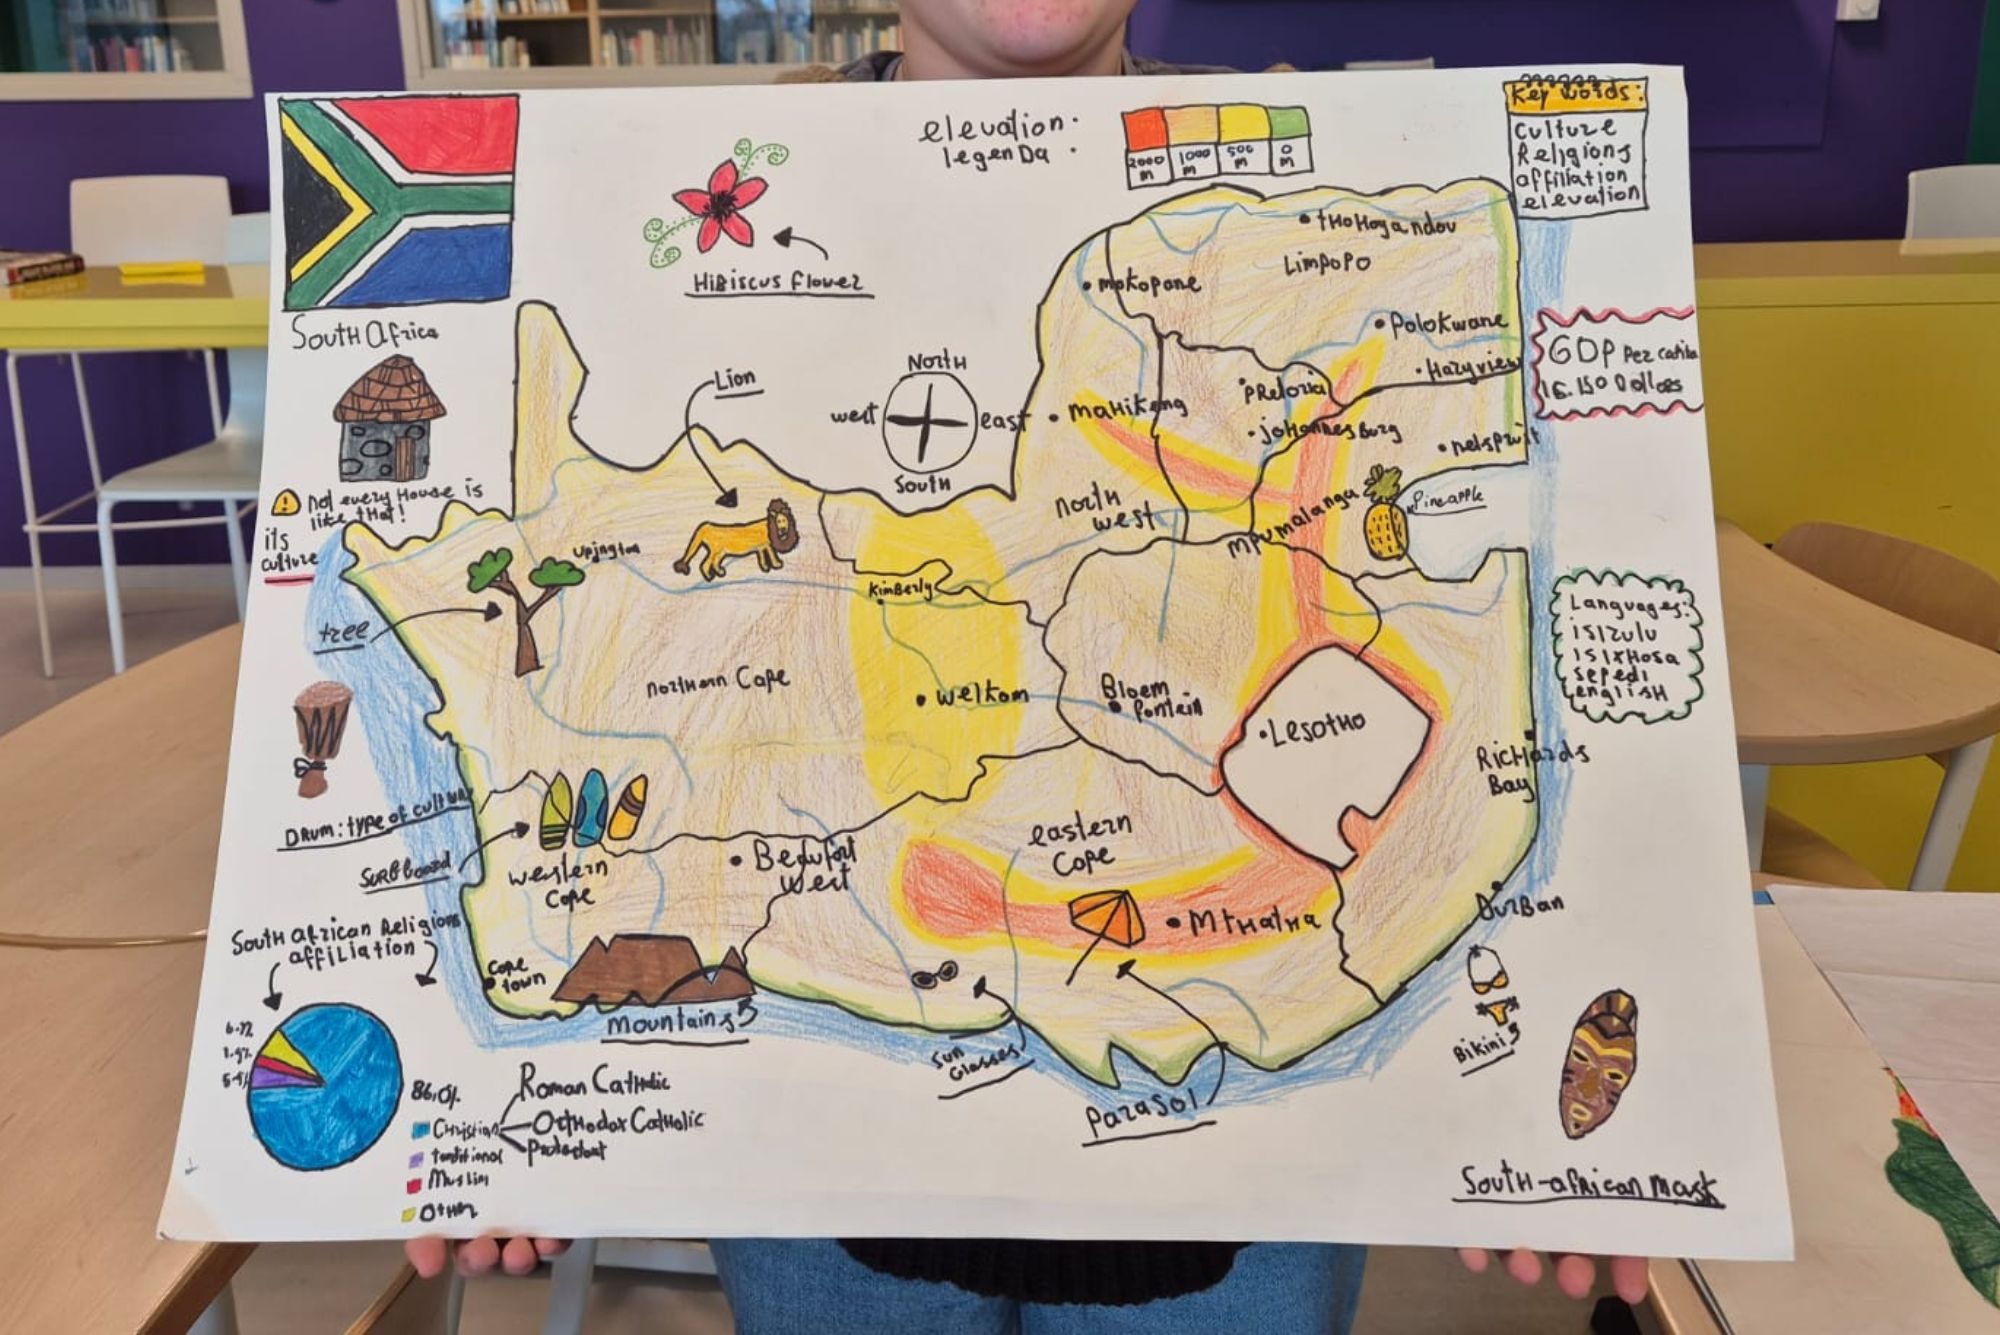 elevation:
legenDa
2000 m
1000 m
500 m
0 m
Key words:
Culture
Religions
affiliation
elevation
South Africa
Hibiscus flower
tHoHoyandou
Limpopo
mokopane
Polokwane
Hazyview
GDP Per
16.150 Dollars
Lion
North
west
east
South
maHikeng
PRetoria
joHannesburg
nelspruit
not every House is
like that!
its
culture
north
west
Mpumalanga
Pineapple
upington
Kimberly
tree
northern Cape
welkom
Bloem
fontein
Lesotho
Languages:
isizulu
isixHosa
sepedi
english
Richards
Bay
DRum: type of culture
Surfboard
western
Cape
Beaufort
West
eastern
Cape
MtHatHa
Durban
South african Religions
affiliation
Cape
town
mountains
Sun
Glasses
Parasol
Bikini
86,0%
Christian
Roman Catholic
Orthodox Catholic
Protestant
traditional
Muslim
Other
South-african mask